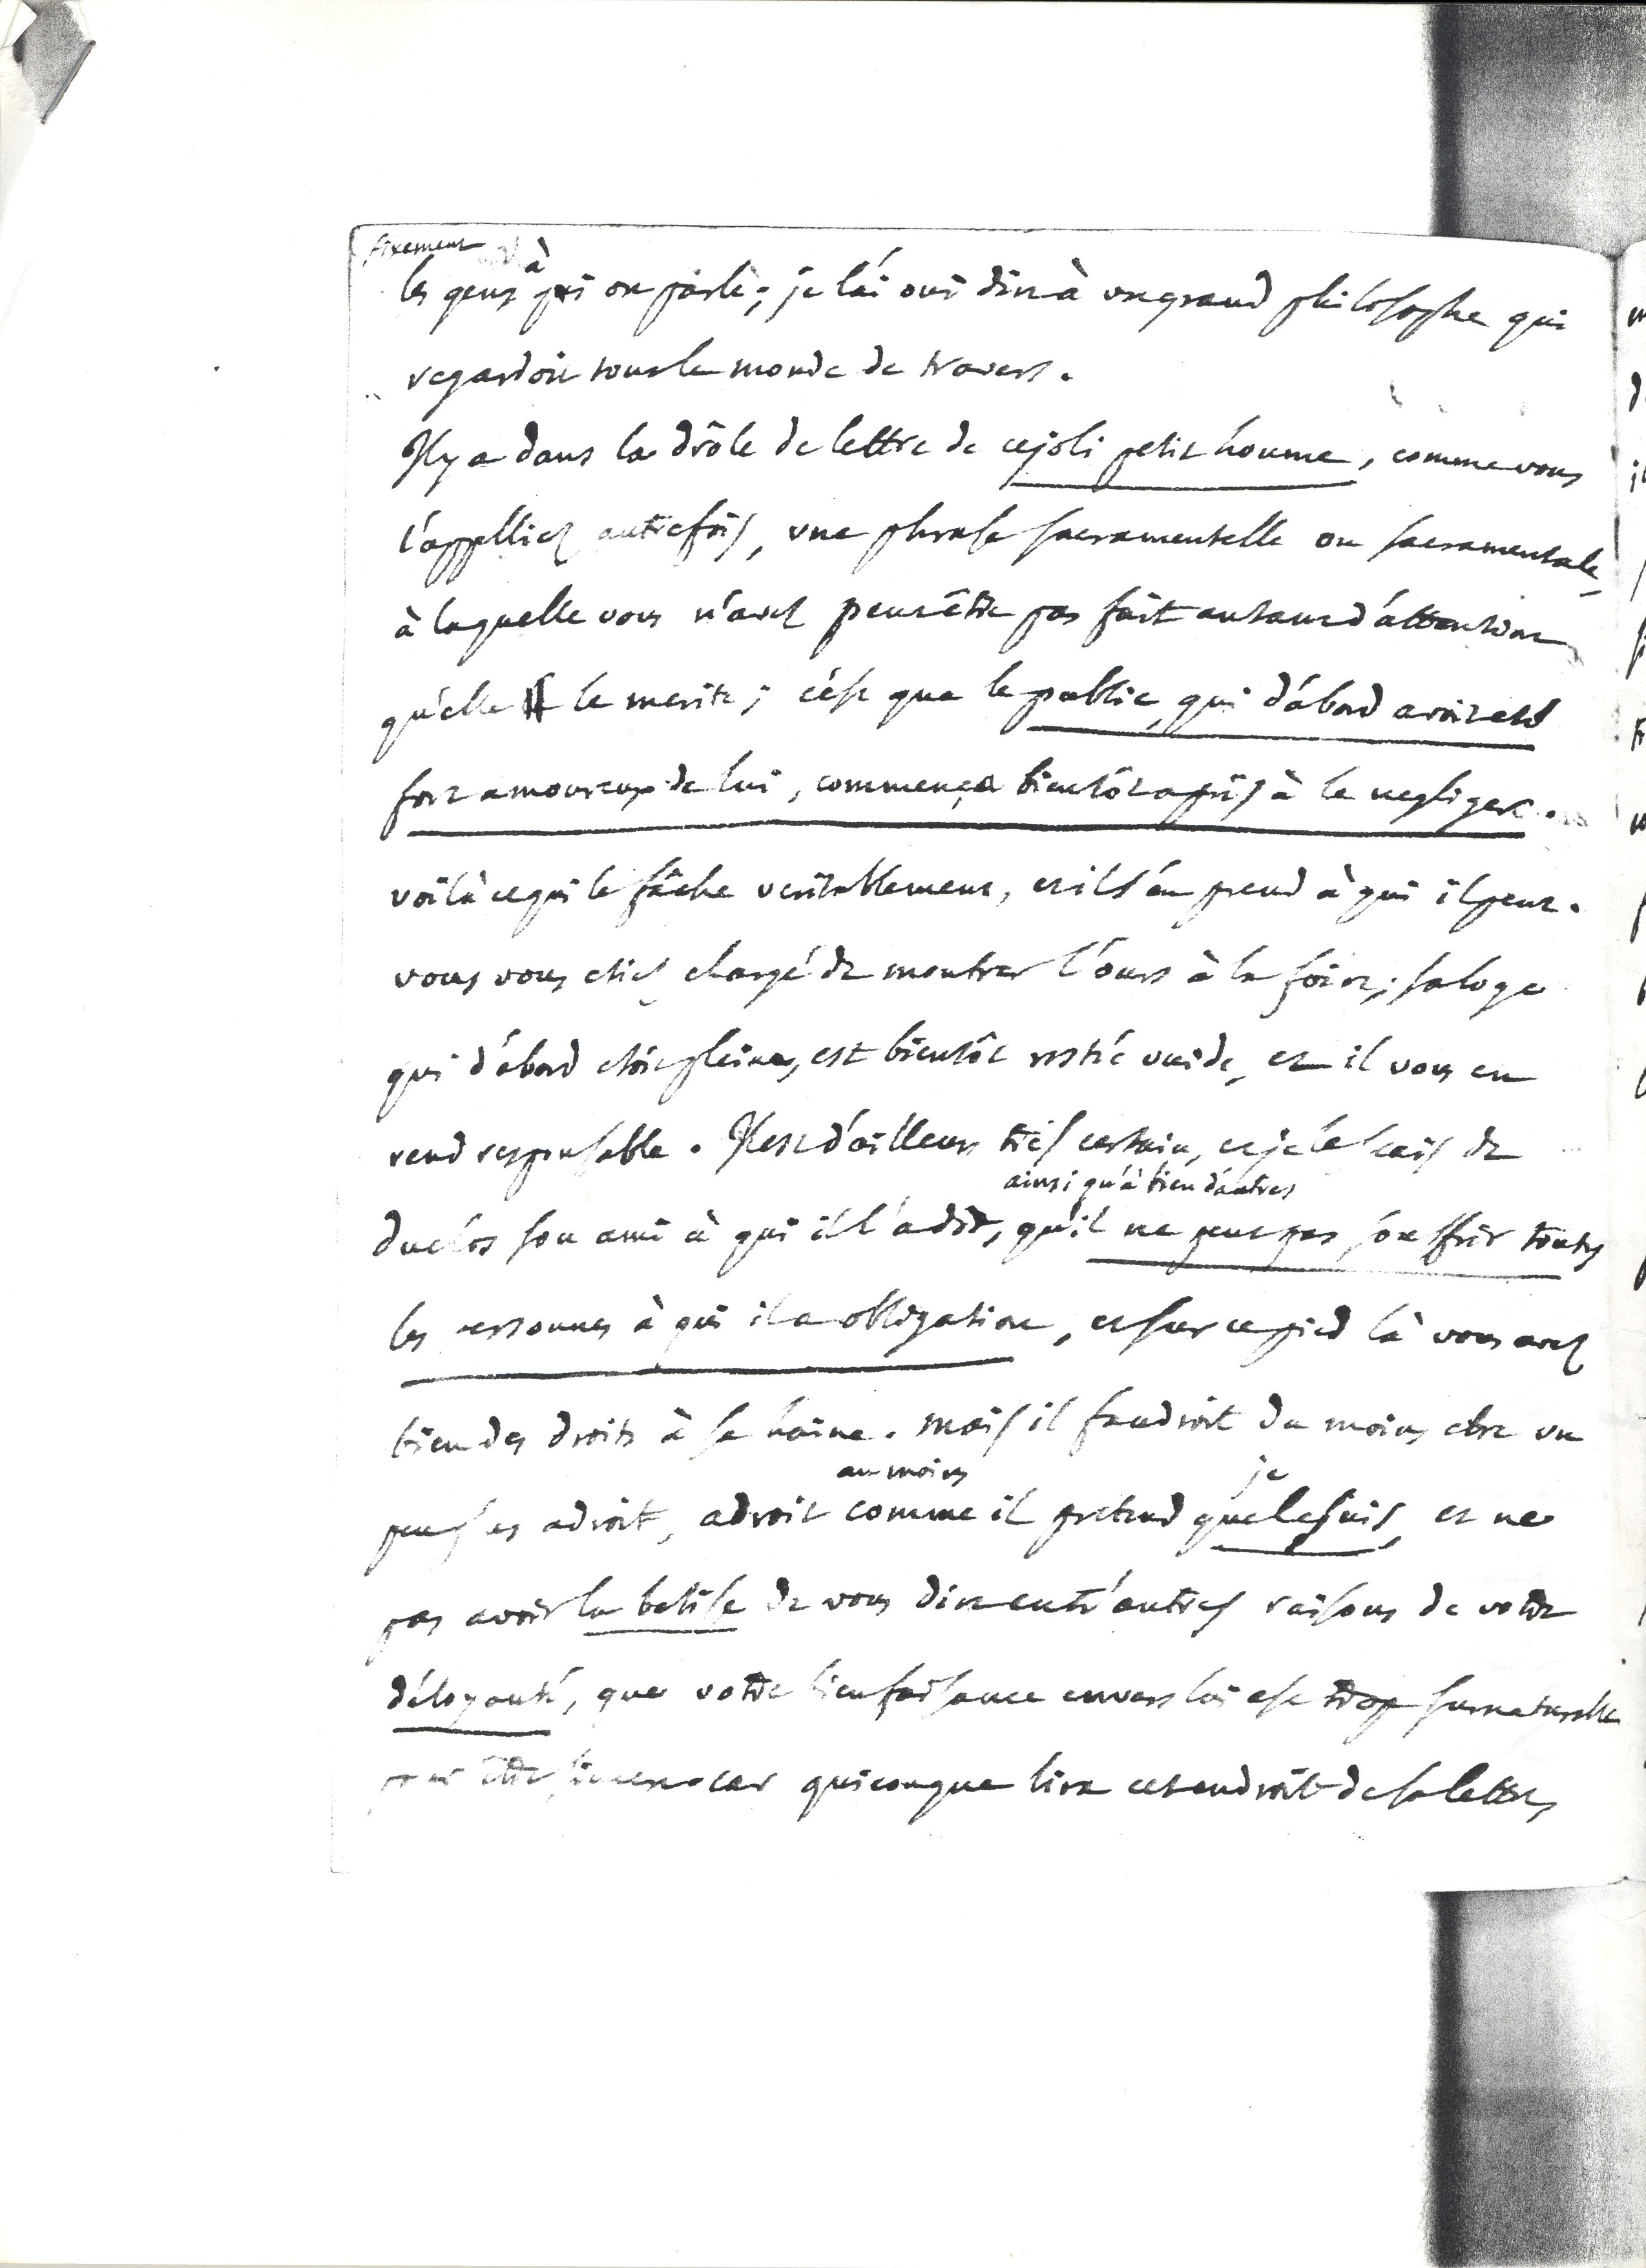 fixement
les gens à qui on parle; je l'ai oui dire à un grand philosophe qui
regardoit tout le monde de travers.
Il y a dans la drôle de lettre de ce joli petit homme, comme vous
l'appelliez autrefois, une phrase sacramentelle ou sacramentale,
à laquelle vous n'avez peut être pas fait autant d'attention
qu'elle le merite; c'est que le public, qui d'abord avoit eté
fort amoureux de lui, commença bientôt après à le negliger.
voilà ce qui le fâche veritablement, et il s'en prend à qui il peut.
vous vous etiez chargé de montrer l'ours à la foire; sa loge
qui d'abord etoit pleine, est bientôt restée vuide, et il vous en
rend responsable. Il est d'ailleurs très certain, et je le sais de
ainsi qu'à bien d'autres
duclos son ami à qui il l'a dit, qu'il ne peut pas souffrir toutes
les personnes à qui il a obligation, et sur ce pied là vous avez
bien des droits à sa haine. mais il faudroit du moins etre un
au moins je
peu plus adroit, adroit comme il pretend que le suis, et ne
pas avoir la betise de vous dire entr'autres raisons de votre
déloyauté, que votre bienfaisance envers lui est trop surnaturelle
pour être sincere. car quiconque lira cet endroit de sa lettre,